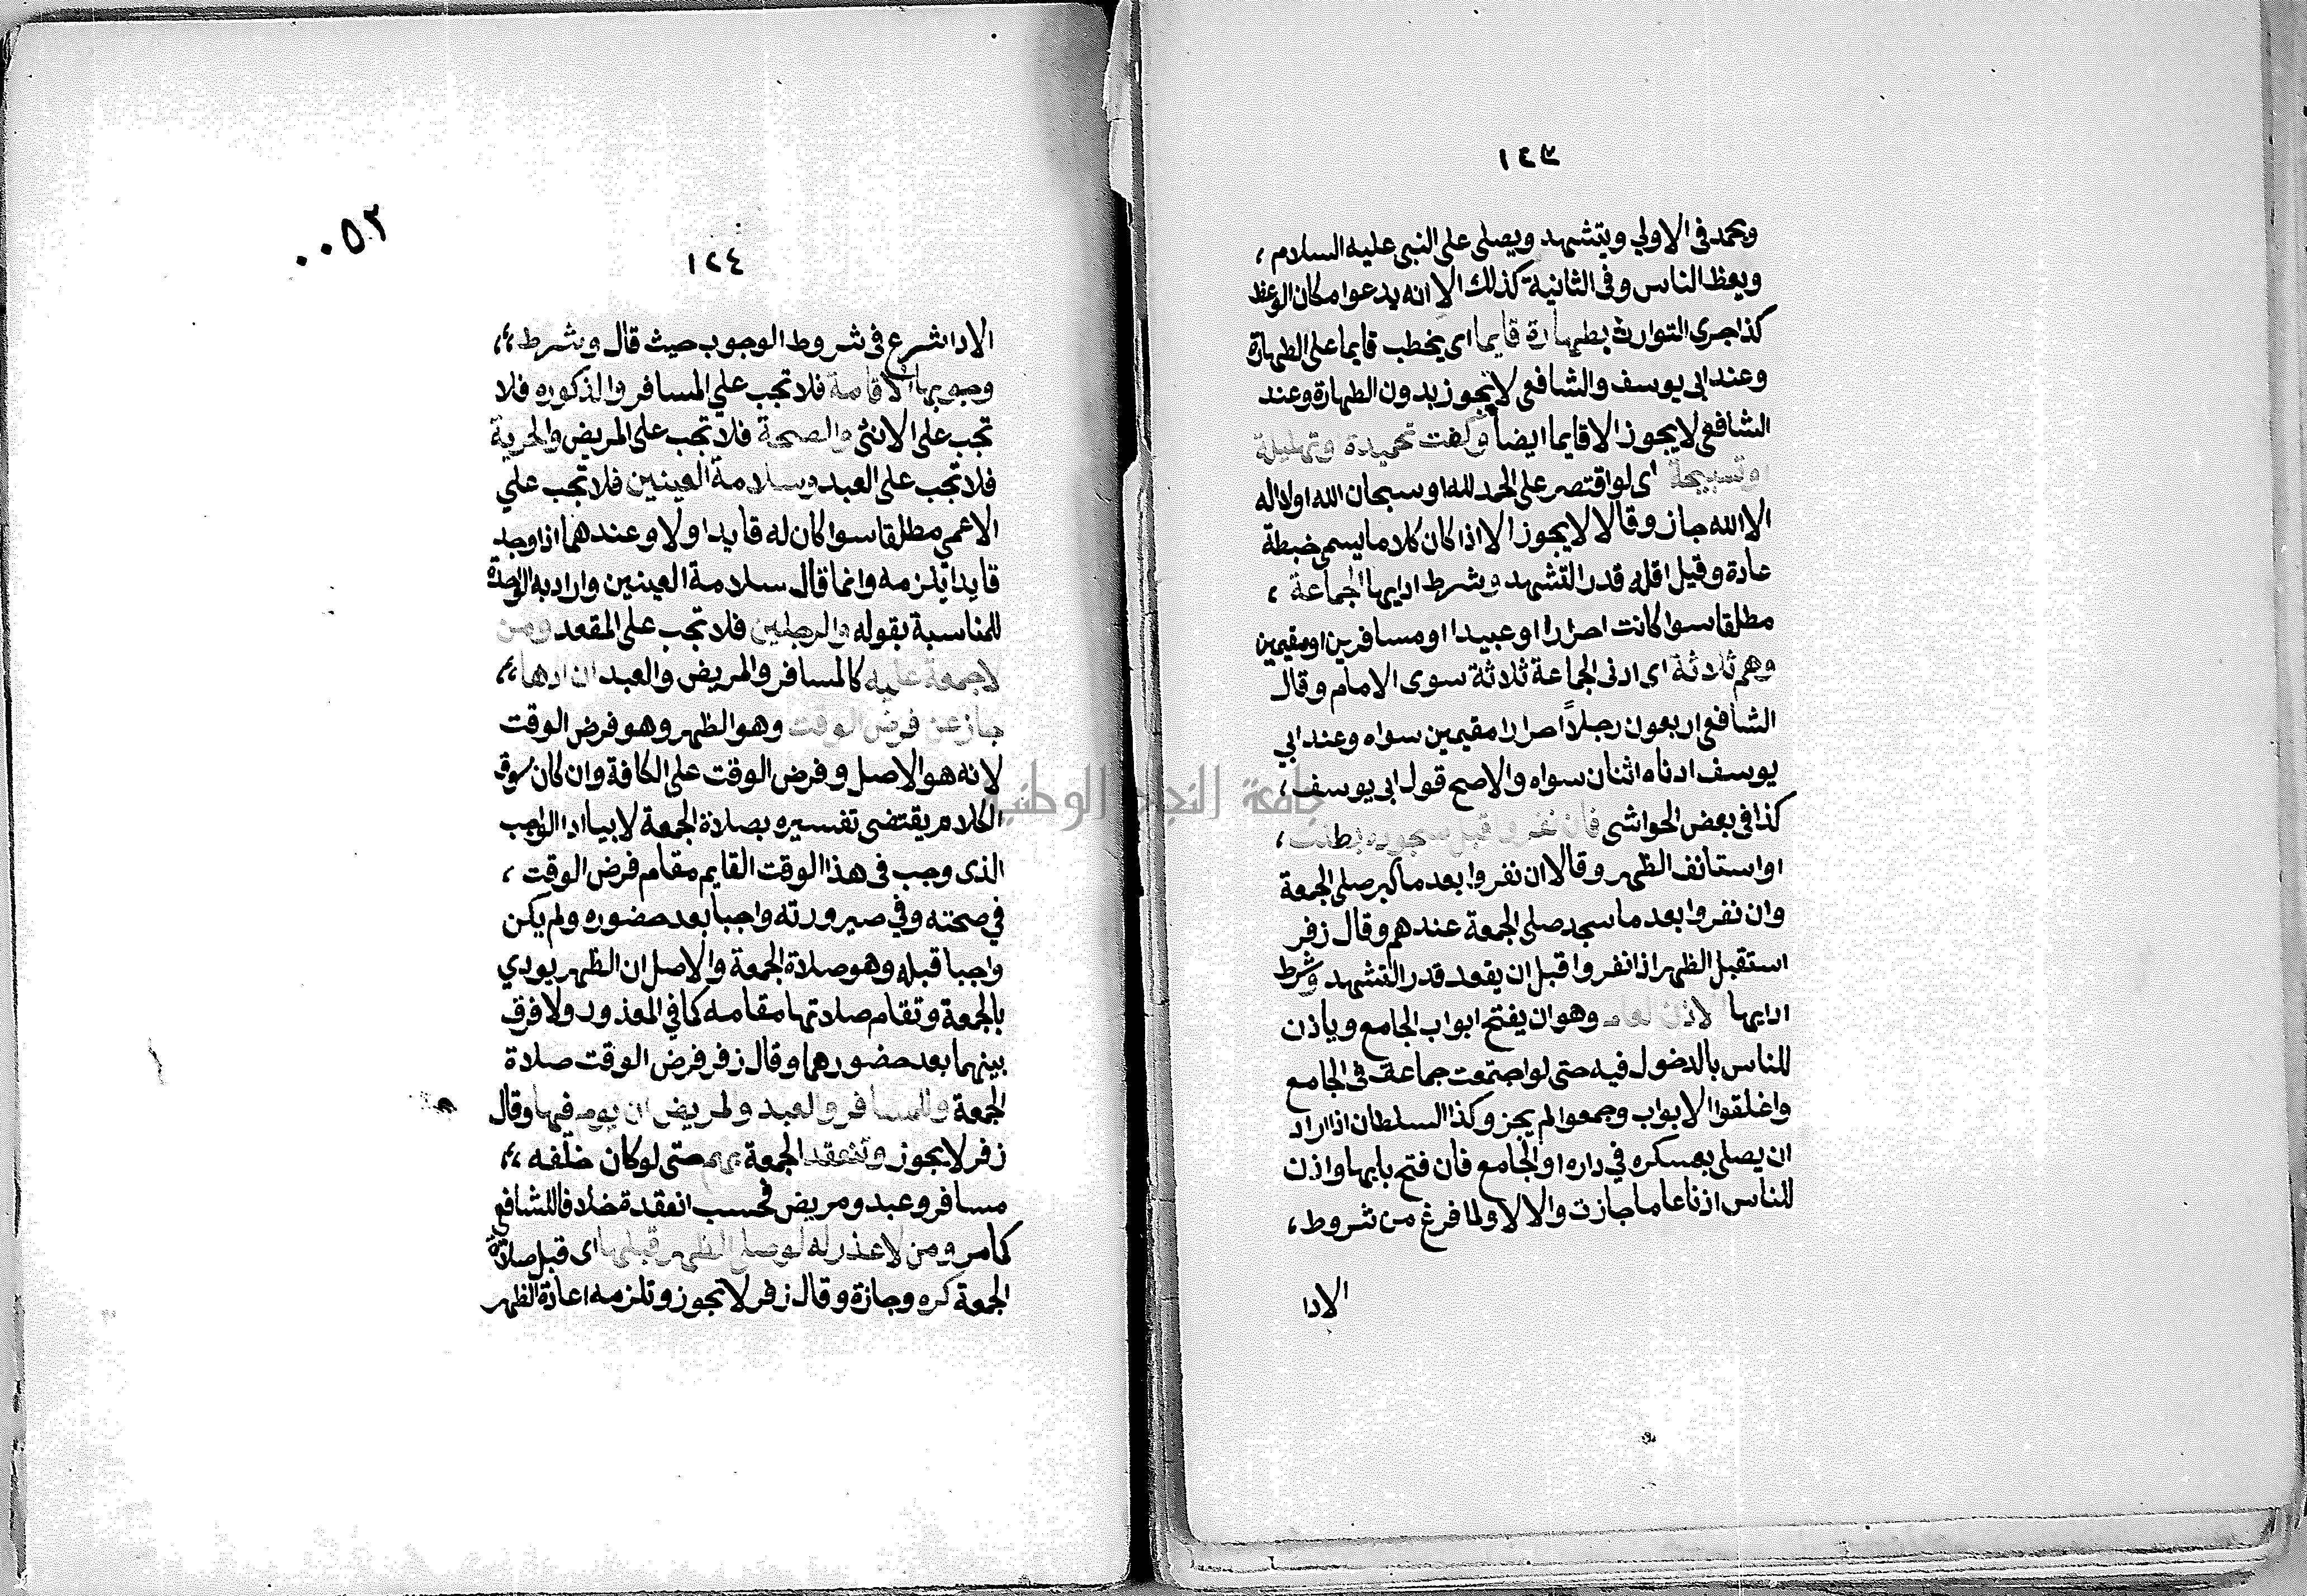 ١٤٣
ويحمد فى الاولي ويتشهد ويصلى على النبى عليه السلام ،
ويعظ الناس وفى الثانية كذلك الا انه يدعوا مكان الوعظ
كذا جرى التوارث بطهارة قايما اى يخطب قايما على الطهارة
وعند ابى يوسف والشافعى لا يجوز بدون الطهارة وعند
الشافعى لا يجوز الا قايما ايضا وكفت تحميدة وتهليلة
او تسبيحة اى لو اقتصر على الحمد لله او سبحان الله او لا اله
الا الله جاز وقالا لا يجوز الا اذا كان كلاما يسمى خبطة
عادة وقيل اقله قدر التشهد وشرط ادايها الجماعة ،
مطلقا سوا كانت احرارا او عبيدا او مسافرين او مقيمين
وهم ثلاثة اى ادنى الجماعة ثلاثة سوى الامام وقال
الشافعى اربعون رجلاً احرارا مقيمين سواه وعند ابي
يوسف ادناه اثنان سواه والاصح قول ابى يوسف ،
كذا فى بعض الحواشى فان نفروا قبل سجوده بطلت ،
او استانف الظهر وقالا ان نفروا بعد ما كبر صلى الجمعة
وان نفروا بعد ما سجد صلى الجمعة عندهم وقال زفر
استقبل الظهر اذا نفروا قبل ان يقعد قدر التشهد وشرط
ادايها الاذن العام وهو ان يفتح ابواب الجامع وياذن
للناس بالدخول فيه حتى لو اجتمعت جماعة فى الجامع
واغلقوا الابواب وجمعوا لم يجز وكذا السلطان اذا اراد
ان يصلى بعسكره في داره او الجامع فان فتح بابها واذن
للناس اذنا عاما جازت والا لا ولما فرغ من شروط ،
الادا
٠٠٥٢
١٢٤
الادا شرع فى شروط الوجوب حيث قال وشرط ،،
وجوبها الاقامة فلا تجب علي المسافر والذكوره فلا
تجب على الانثى والصحة فلا تجب على المريض والحرية
فلا تجب على العبد وسلامة العينين فلا تجب علي
الاعمي مطلقا سوا كان له قايدا ولا وعندهما اذا وجد
قايدا يلزمه وانما قال سلامة العينين واراد به الواحدة
للمناسبة بقوله والرجلين فلا تجب على المقعد ومن
لا جمعة عليه كالمسافر والمريض والعبد ان ادها ،،
جاز عن فرض الوقت وهو الظهر وهو فرض الوقت
لانه هو الاصل وفرض الوقت على الكافة وان كان سوق
الكلام يقتضى تفسيره بصلاة الجمعة لا بيا ادا الواجب
الذى وجب فى هذا الوقت القايم مقام فرض الوقت ،
في صحته وفي صيرورته واجبا بعد حضوره ولم يكن
واجبا قبله وهو صلاة الجمعة والاصل ان الظهر يودي
بالجمعة وتقام صلاتها مقامه كما في المعذور ولا فرق
بينهما بعد حضورهما وقال زفر فرض الوقت صلاة
الجمعة وللمسافر والعبد والمريض ان يوم فيها وقال
زفر لا يجوز وتنعقد الجمعة بهم حتى لو كان خلفه ،،
مسافر وعبد ومريض فحسب انعقدة خلافا للشافعى
كما مر ومن لا عذر له لو صلى الظهر قبلها اى قبل صلاة
الجمعة كره وجازة وقال زفر لا تجوز وتلزمه اعادة الظهر
جامعة النجاح الوطنية